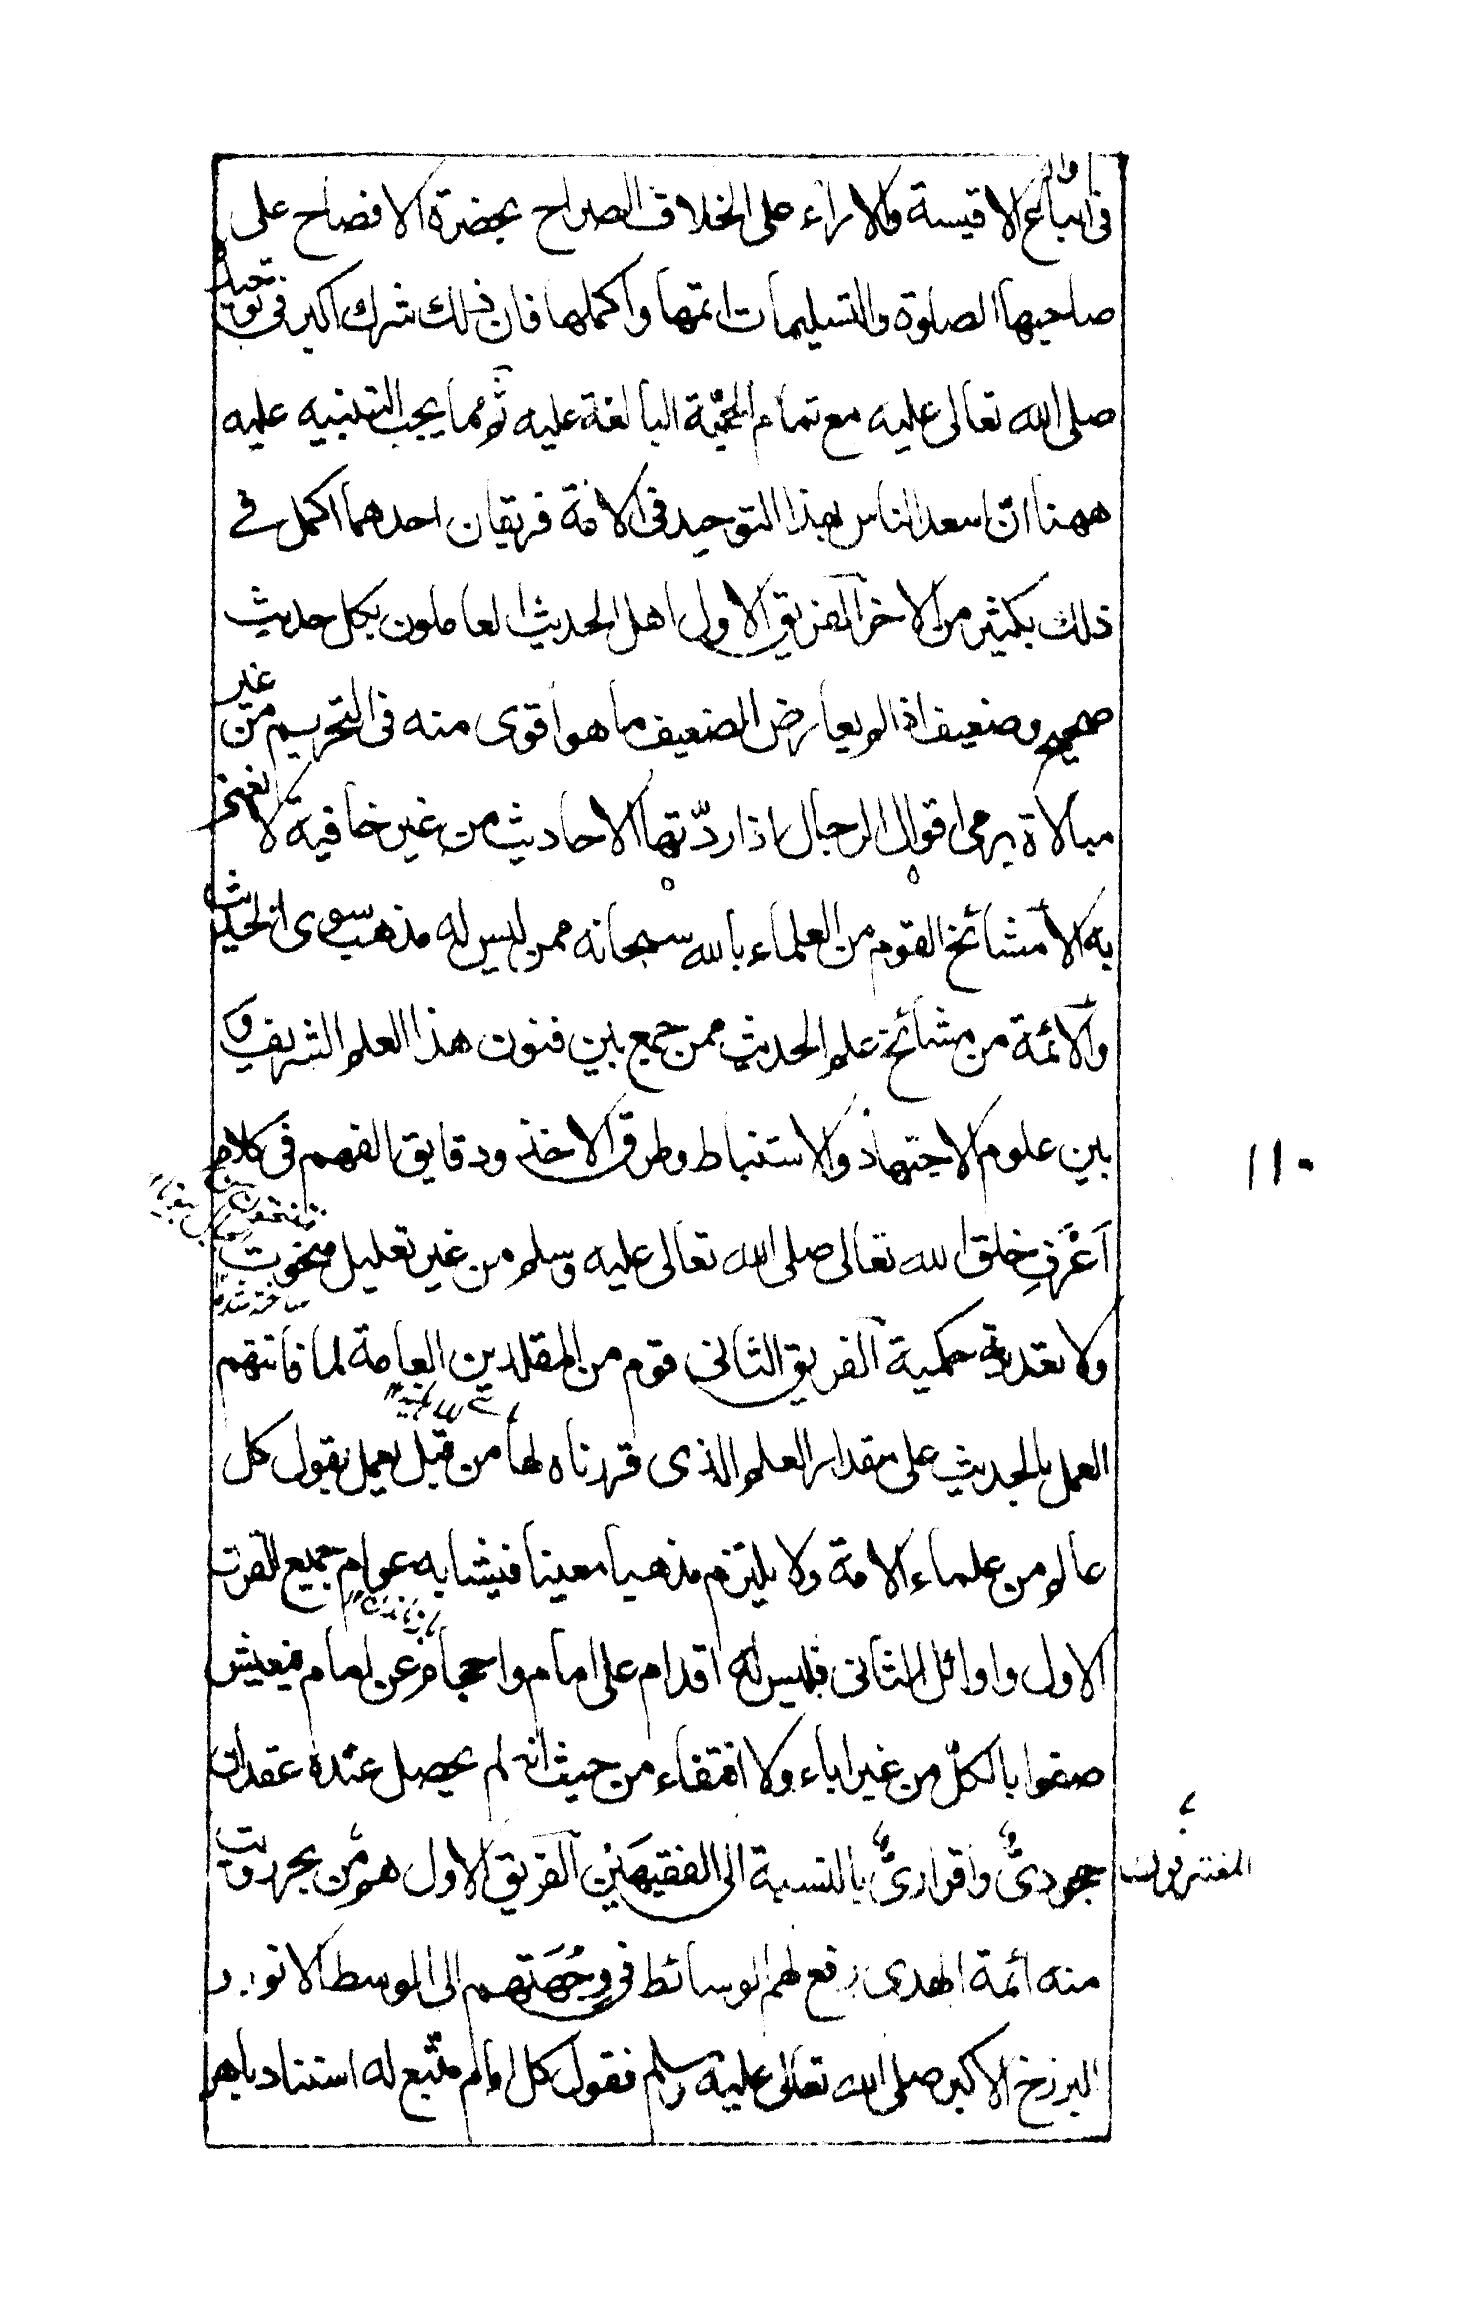 في اتباع الاقيسة والاراء على الخلاف الصراح بحضرة الافصاح على
صاحبها الصلوة والتسليمات اتمها واكملها فان ذلك شرك اكبر في توحيده
صلى الله تعالى عليه مع تمام الحجّة البالغة عليه ثم مما يجب التنبيه عليه
ههنا انّ اسعد الناس بهذا التوحيد في الامة فريقان احدهما اكمل في
ذلك بكثير من الاخر الفريق الاول اهل الحديث العاملون بكل حديث
صحيح وضعيف اذا لم يعارض الضعيف ما هو اقوى منه في التحريم من غير
مبالاة يرمى اقوال الرجال اذا ردّتها الاحاديث من غير خافية لا
به الا مشائخ القوم من العلماء بالله سبحانه ممن ليس له مذهب سوى الحديث
والائمة من مشائخ علم الحديث ممن جمع بين فنون هذا العلم الشريف و
بين علوم الاجتهاد والاستنباط وطرق الاخذ ودقايق الفهم في كلام
اَعْرَفِ خلق الله تعالى صلى الله تعالى عليه وسلم من غير تعليل منحوت
ولا تعدية حكمية الفريق الثاني قوم من المقلدين العامة لما فاتتهم
العمل بالحديث على مقدار العلم الذى قررناه لها من قبل يعمل بقول كل
عالم من علماء الامة ولا يلتزم مذهبا معينا فيشابه عوام جميع القرن
الاول واوائل الثانى فليس له اقدام على امام واحجام عن امام فيعيش
صفوا بالكلّ من غير اباء ولا اقتفاء من حيث انه لم يحصل عنده عقدان
جحودىٌّ واقرارىٌّ بالنسبة الى الفقيهَيْن الفريق الاول هم من بحر
منه ائمة الهدى رفع لهم الوسائط في وِجْهَتِهم الى الوسط الانور و
البرزخ الاكبر صلى الله تعالى عليه وسلم فقول كل امام متّبع له استناد
١١٠